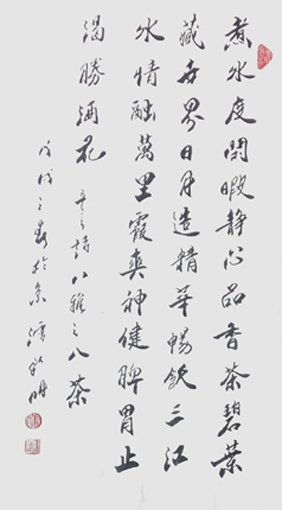 煮水度閒暇静心品香茶碧葉
藏世界日月造精華暢飲三江
水情融萬里霞爽神健脾胃止
渴勝酒花
辛之詩八雅之八茶
戊戌之春於京